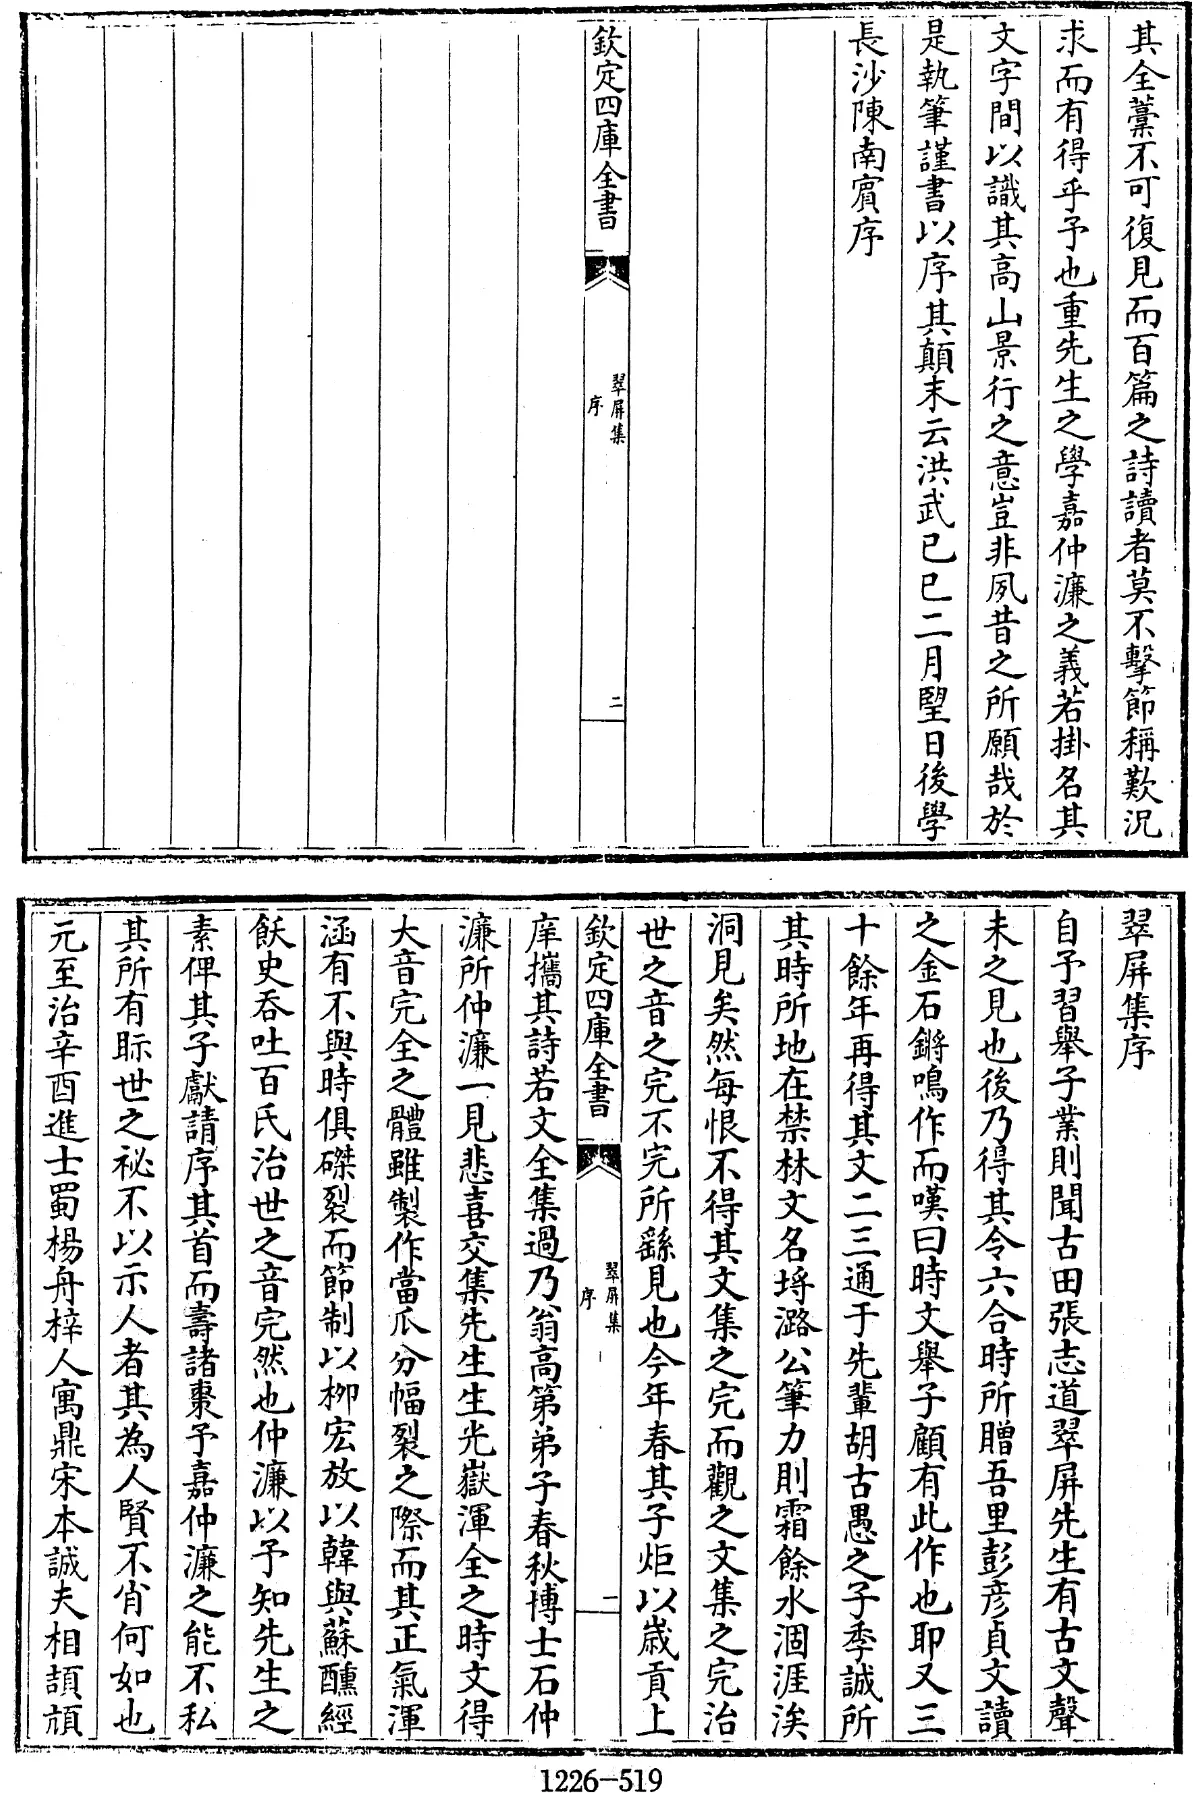 其全藁不可復見而百篇之詩讀者莫不擊節稱歎況
求而有得乎予也重先生之學嘉仲濂之義若掛名其
文字間以識其高山景行之意豈非夙昔之所願哉於
是執筆謹書以序其顛末云洪武已巳二月朢日後學
長沙陳南賓序
欽定四庫全書
翠屏集
序
二
翠屏集序
自予習舉子業則聞古田張志道翠屏先生有古文聲
未之見也後乃得其令六合時所贈吾里彭彥貞文讀
之金石鏘鳴作而嘆曰時文舉子顧有此作也耶又三
十餘年再得其文二三通于先輩胡古愚之子季誠所
其時所地在禁林文名埓潞公筆力則霜餘水涸涯涘
洞見矣然每恨不得其文集之完而觀之文集之完治
世之音之完不完所繇見也今年春其子炬以歲貢上
欽定四庫全書
翠屏集
序
一
庠攜其詩若文全集過乃翁高第弟子春秋博士石仲
濂所仲濂一見悲喜交集先生生光嶽渾全之時文得
大音完全之體雖製作當瓜分幅裂之際而其正氣渾
涵有不與時俱磔裂而節制以栁宏放以韓與蘇醺經
飫史吞吐百氏治世之音完然也仲濂以予知先生之
素俾其子獻請序其首而壽諸棗予嘉仲濂之能不私
其所有眎世之祕不以示人者其為人賢不肖何如也
元至治辛酉進士蜀楊舟梓人寓鼎宋本誠夫相頡頏
1226-519